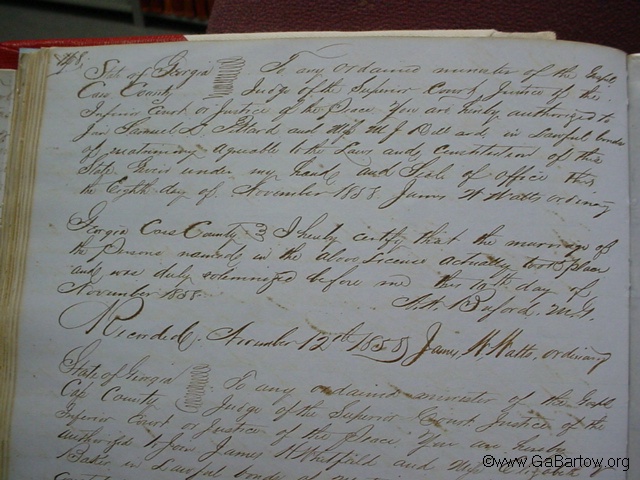 Stat of Georgia } To any ordained minister of the Gospl
Cass County } Judge of the Superior Court, Justice of the
Inferior Court or Justice of the Peace You are hereby authorized to
Join Samuel L. and Miss M J in Lawful bonds
of matrimony agreeable to the Laws and Constitution of this
State Given under my hand and Seal of office this
the Eighth day of November 1858 James W Watts ordinary
Georgia Cass County } I hereby certify that the marriage of
the Persons named in the above License actually took place
and was duly solemnized before me this day of
November 1858. Buford, M.G.
Recorded, November 12th 1858 James, W. Watts, ordinary
State of Georgia } To any ordained minister of the Gospl
Cass County } Judge of the Superior Court Justice of the
Inferior Court or Justice of the Peace You are hereby
authorized to Join James Whitfield and Miss Elizabeth
Baker in Lawful bonds of
©www.GaBartow.org